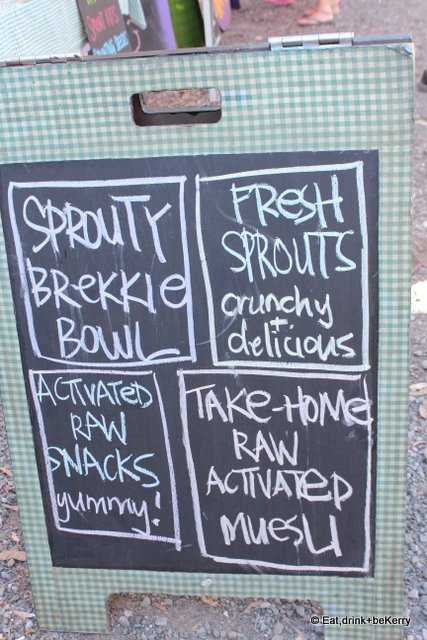 SPROUTY
BREKKIE
BOWL
FRESH
SPROUTS
crunchy
+
delicious
ACTIVATED
RAW
SNACKS
yummy!
TAKE-HOME
RAW
ACTIVATED
MUESLI
© Eat,drink+beKerry